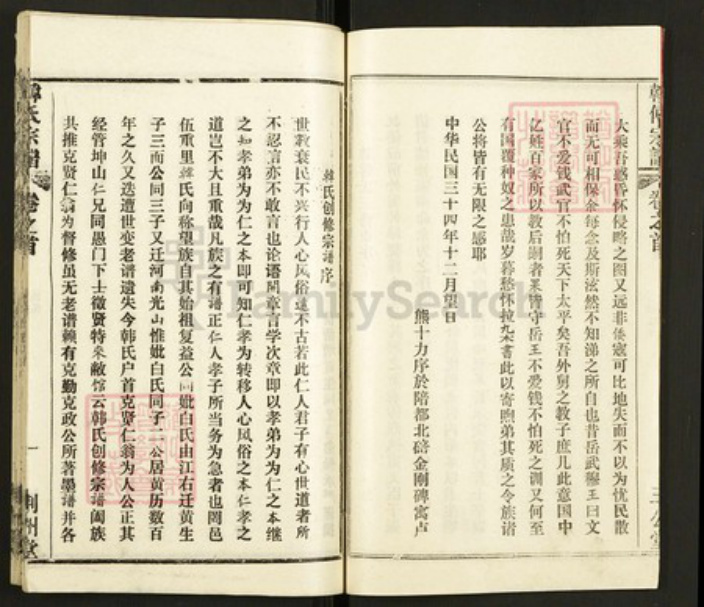 大乘吾惑昏怀侵略之图又远非倭寇可比地失而不以为忧民散
而无可相保余每念及斯泫然不知涕之所自也昔岳武穆王曰文
官不爱钱武官不怕死天下太平矣吾外舅之教子庶几此意国中
亿姓百家所以教后嗣者果皆守岳王不爱钱不怕死之训又何至
有国覆种奴之患哉岁暮愁怀拉杂书此以寄煦弟其质之令族诸
公将皆有无限之感耶
中华民国三十四年十二月望日
熊十力序於陪都北碚金刚碑寓卢
韩氏创修宗谱序
世教衰民不兴行人心风俗远不古若此仁人君子有心世道者所
不忍言亦不敢言也论语开章言学次章即以孝弟为为仁之本继
之知孝弟为为仁之本即可知仁孝为转移人心风俗之本仁孝之
道岂不大且重哉凡族之有谱正仁人孝子所当务为急者也罔邑
伍重里韩氏向称望族自其始祖复益公同妣白氏由江右迁黄生
子三而公同三子又迁河南光山惟妣白氏同子二公居黄历数百
年之久又迭遭世变老谱遗失今韩氏户首克贤仁翁为人公正其
经管坤山仁兄同愚门下士徵贤特来敝馆云韩氏创修宗谱阖族
共推克贤仁翁为督修虽无老谱赖有克勤克政公所著墨谱并各
韩氏宗谱
卷之首
一
荆州堂